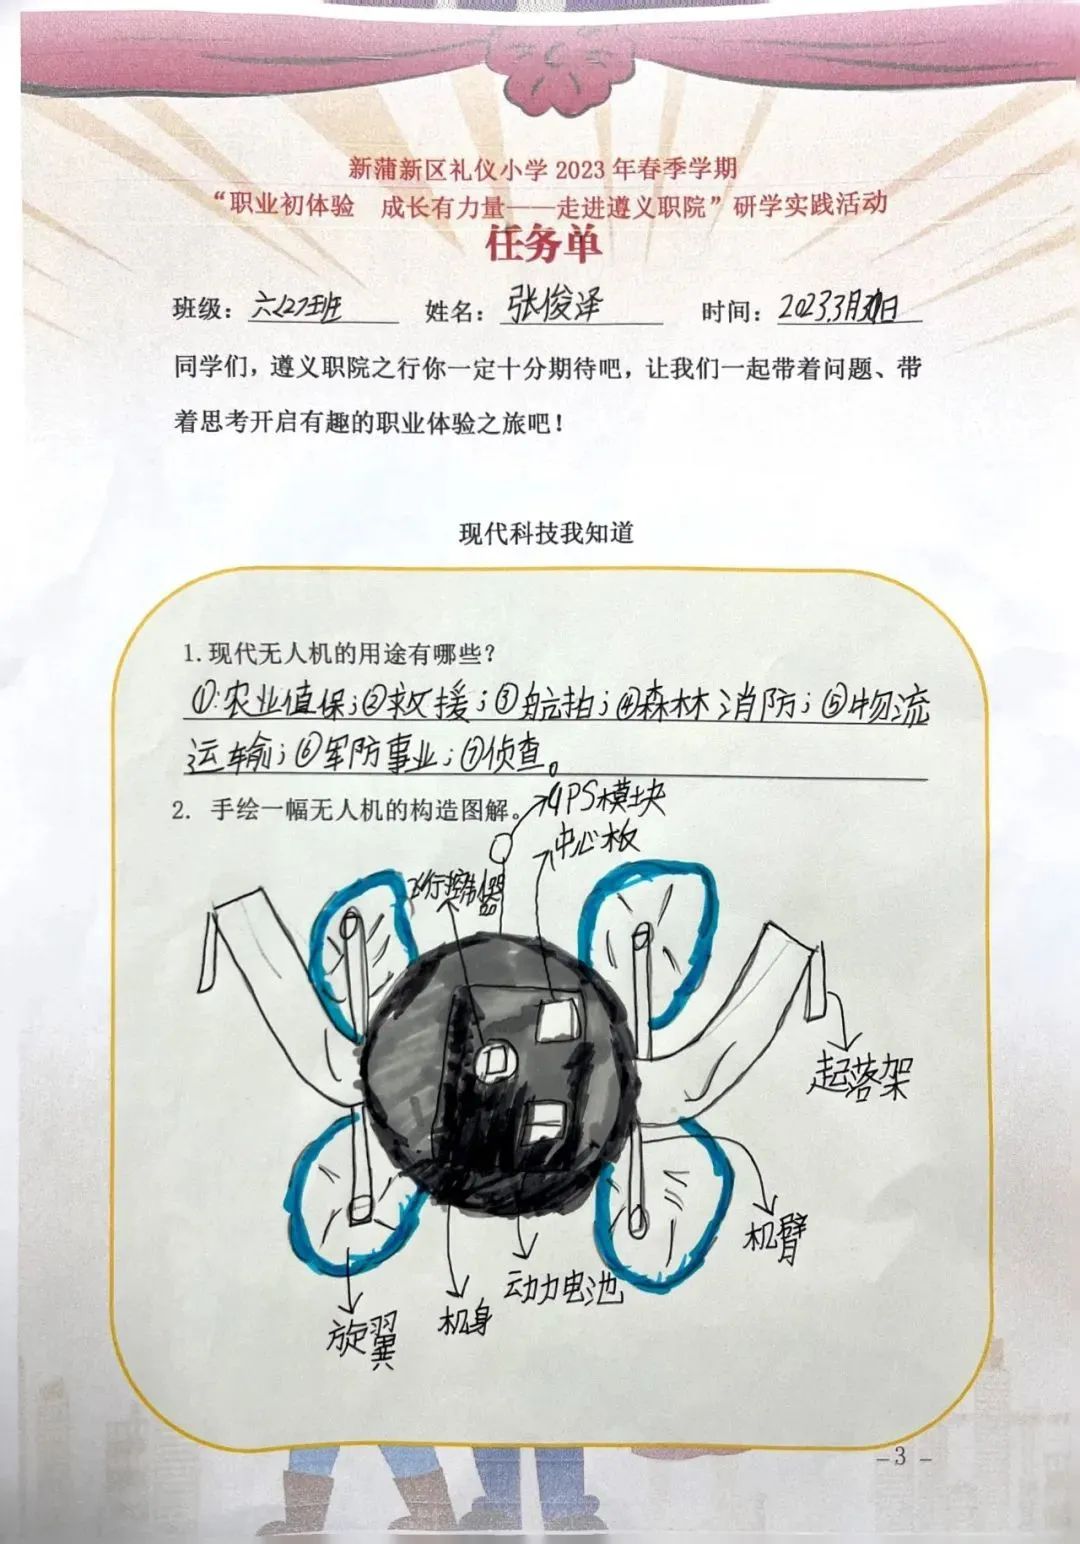 新蒲新区礼仪小学2023年春季学期
“职业初体验　成长有力量——走进遵义职院”研学实践活动
任务单
班级：六(2)班　姓名：张俊泽　时间：2023.3月30日
同学们，遵义职院之行你一定十分期待吧，让我们一起带着问题、带
着思考开启有趣的职业体验之旅吧！
现代科技我知道
1.现代无人机的用途有哪些？
①:农业值保；②救援；③航拍；④森林消防；⑤物流
运输；⑥军防事业；⑦侦查。
2. 手绘一幅无人机的构造图解。
GPS模块
中心板
飞行控制器
起落架
机臂
动力电池
机身
旋翼
-3-